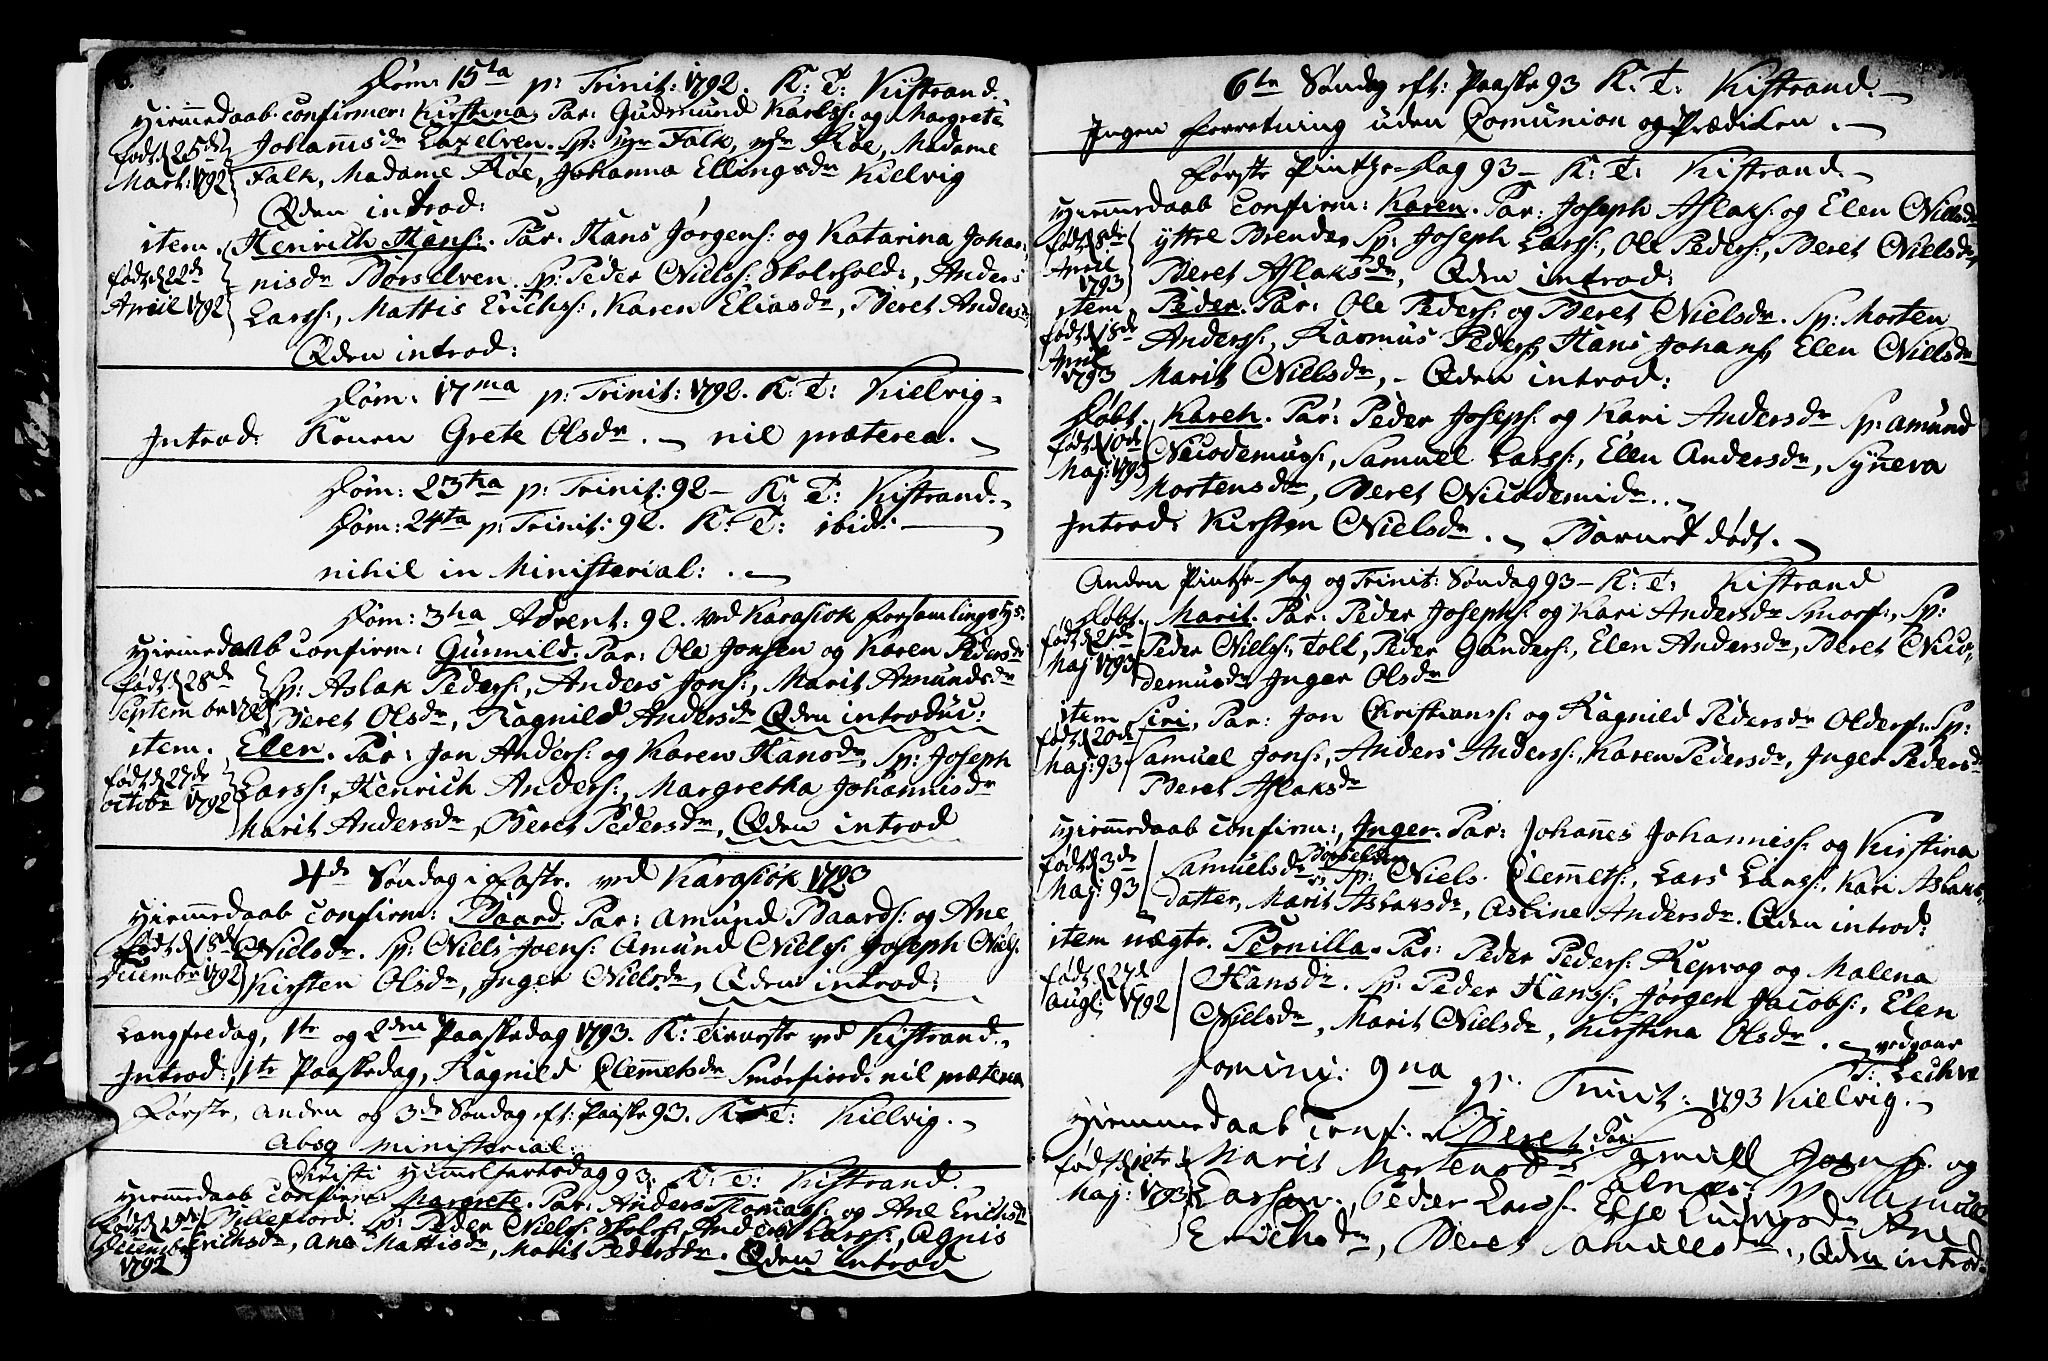 6.
Dom: 15ta p: Trinit: 1792. K: T: Kistrand.
Hiemmedaab confirmer: Kirstina. Par: Gudmund Karlss: og Margrete
født d 25de Mart: 1792
Johannisdr Laxelven. Sp: Hr Falk, Hr Røe, Madame
Falk, Madame Røe, Johanna Ellingsdr Kielvig
Qden introd:
item. Henrich Hans:. Par: Hans Jørgens: og Katarina Johan=
født d 22de April 1792
nisdr Børselven. Sp: Peder Niels: Skolehold:, Anders
Larss:, Mattis Erichs:, Karen Eliasdr, Beret Andersdr
Qden introd:
Dom: 17ma p: Trinit: 1792. K: T: Kielvig.
Introd: Konen Grete Olsdr. nil præterea.
Dom: 23tia p: Trinit: 92 – K: T: Kistrand.
Dom: 24ta p: Trinit: 92. K: T: ibid:
nihil in Ministerial:.
Dom: 3tia Advent: 92. ved Karasiok forsamlingshs:
Hiemmedaab confirm: Gunnild. Par: Ole Jonsen og Karen Pedersdr
født d 28de Septembr 1792
Sp: Aslak Peders:, Anders Jons:, Marit Amundsdr
Beret Olsdr, Ragnild Andersdr Qden introduc:
item. Elen. Par: Jon Anders: og Karen Hansdr, Sp: Joseph
født d 27de octobr 1792
Larss:, Henrich Anders:, Margretha Johannisdr
Marit Andersdr, Beret Pedersdr, Qden introd
4de Søndag i Faste. ved Karasiok 1793
Hiemmedaab confirm: Baard. Par: Amund Baards: og Ane
født d 18de Decembr 1792
Nielsdr. Sp: Niels Joens: Amund Niels: Joseph Niels:
Kirsten Olsdr, Inger Nielsdr, Qden introd:
Langfredag, 1te og 2den Paaskedag 1793. K: Tieneste ved Kistrand.
Introd: 1te Paaskedag, Ragnild Clemmetsdr Smørfiord. nil præterea
Første, anden og 3de Søndag eft: Paaske 93. K: T: Kielvig.
Absq ministerial:
Christi Himelfartsdag 93. K: T: Kistrand.
Hiemmedaab confirm: Margrete. Par: Anders Thomass: og Ane Erichsdr
født d Decembr 1792
Billefiord. Sp: Peder Niels: Skoleh:, Anders Larss:, Agnis
Erichsdr, Ane Mattisdr, Marit Pedersdr. Qden introd
6te Søndag eft: Paaske 93 K: T: Kistrand.
Ingen forretning uden Comunion og Prædiken.
Første Pintze-dag 93 – K: T: Kistrand.
Hiemmedaab Confirm: Karen. Par: Joseph Aslaks: og Elen Nielsdr
født d 8de April 1793
yttre Brenda, Sp: Joseph Larss:, Ole Peders:, Beret Nielsdr,
Beret Aslaksdr, Qden introd:
item. Peder. Par: Ole Peders: og Beret Nielsdr. Sp: Morten
født d 18de April 1793
Anderss:, Rasmus Peders, Hans Johans, Elen Nielsdr
Marit Nielsdr, – Qden introd:
Døbt. Karen. Par: Peder Joseps: og Kari Andersdr Sp: Amund
født d 10de Maj: 1793
Nicodemuss:, Samuel Larss:, Elen Andersdr, Syneva
Mortensdr, Beret Nicodemidr.
Introd: Kirsten Nielsdr. Barnet dødt.
Anden Pintze-dag og Trinit: Søndag 93 – K: T: Kistrand
Døbt. Marit. Par: Peder Josephs: og Kari Andersdr Smorf:, Sp:
født d 21de Maj 1793
Peder Nielss: Told, Peder Gunders:, Elen Andersdr, Beret Nico,
demusdr Inger Olsdr
item Siri, Par: Jon Christianss: og Ragnild Pedersdr Olderf: Sp:
født d 20de Maj: 93.
Samuel Jons:, Anders Anderss:, Karen Pedersdr, Inger Pedersdr
Beret Aslaksdr
Hiemmedaab confirm:, Inger. Par: Johannes Johanniss: og Kirstina
født d 3de Maj: 93
Samuelsdr Børselven Sp: Niels Clemmets:, Lars Larss:, Kari Aslaks,
datter, Marit Aslaksdr, Asline Andersdr. Qden introd:
item nægte. Pernilla. Par: Peder Peders: Repvog og Malena
født d 27de Augl: 1792
Hansdr. Sp: Peder Hanss:, Jørgen Jacobs:, Elen
Nielsdr, Marit Nielsdr, Kirstina Olsdr.
Domini: 9na p: Trinit: 1793 Kielvig.
Hiemmedaab conf: Beret. Par: Samuel Joens: og
født d 12te Maj: 1793
Marit Mortensdr Sp: Samuel
Larsen, Peder Larss: Else Ludvigsdr Ane
Erichsdr, Beret Samuelsdr., Qden introd: